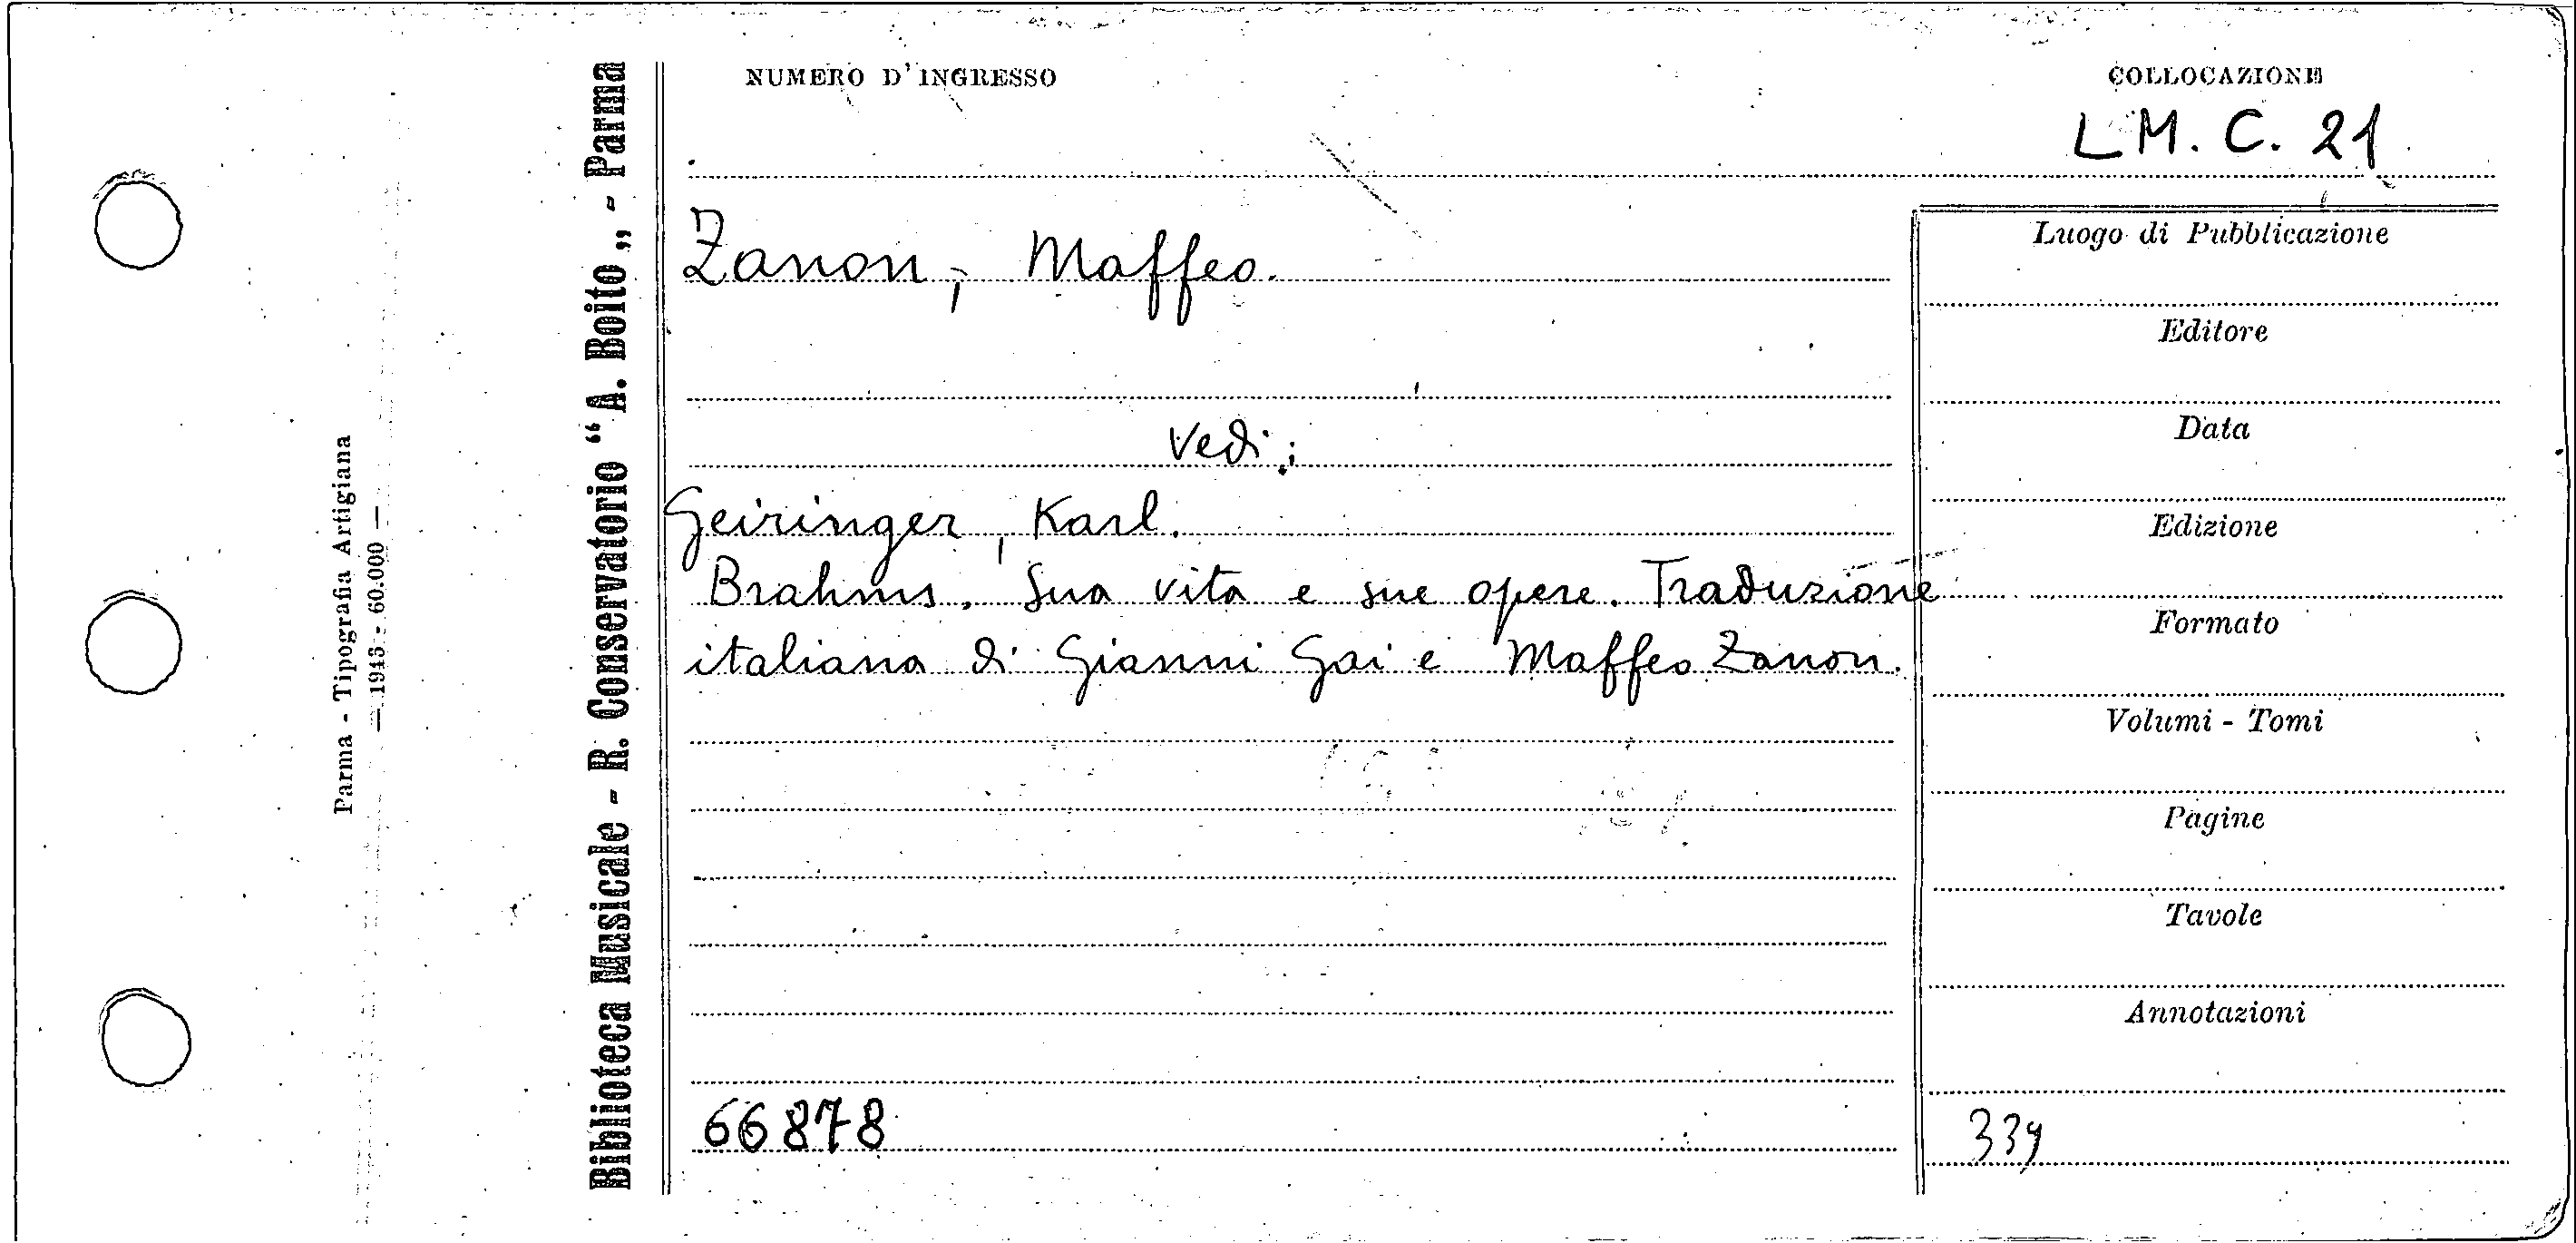 NUMERO D'INGRESSO
COLLOCAZIONE
LM. C. 21
Zanon, Maffeo.
Vedi:
Geiringer, Karl.
Brahms. Sua vita e sue opere. Traduzione
italiana di Gianni Gai e Maffeo Zanon.
66878
Luogo di Pubblicazione
Editore
Data
Edizione
Formato
Volumi - Tomi
Pagine
Tavole
Annotazioni
339
Biblioteca Musicale - R. Conservatorio "A. Boito" - Parma
Parma - Tipografia Artigiana
— 1943 - 60.000 —